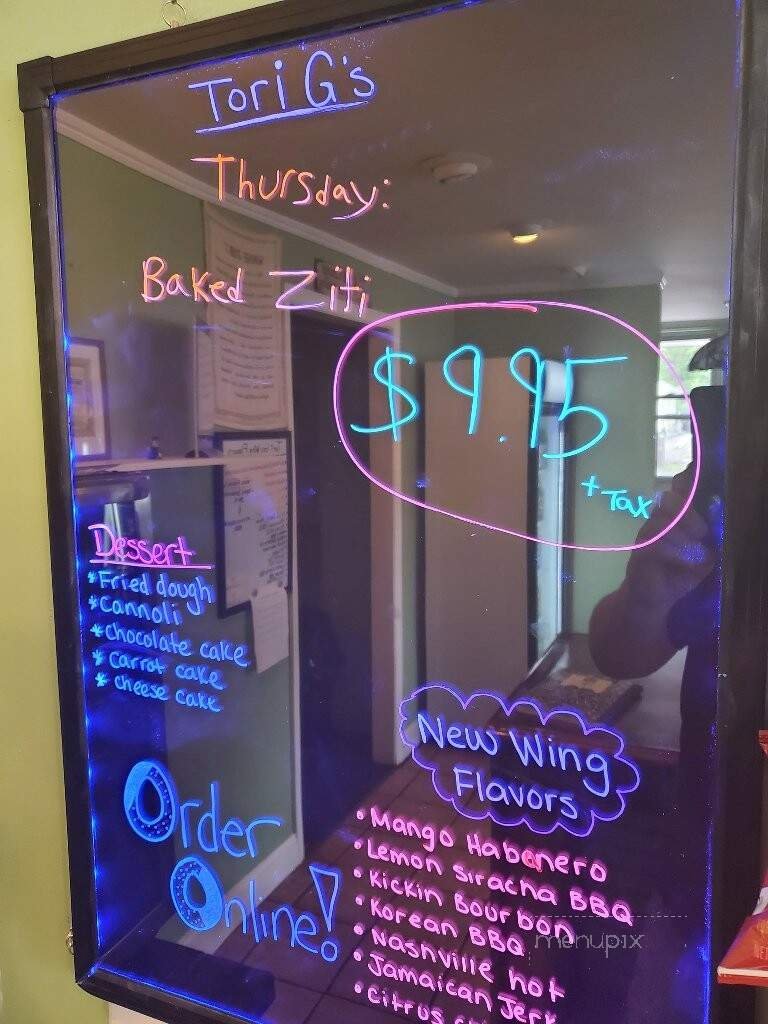 Tori G's
Thursday:
Baked Ziti
$9.95
+ Tax
Dessert
*Fried dough
*Cannoli
*chocolate cake
* carrot cake
* cheese cake
New Wing
Flavors
• Mango Habanero
• Lemon siracha BBQ
• Kickin Bourbon
• Korean BBQ
• Nashville hot
• Jamaican Jerk
• Citrus
Order
Online!
menupix